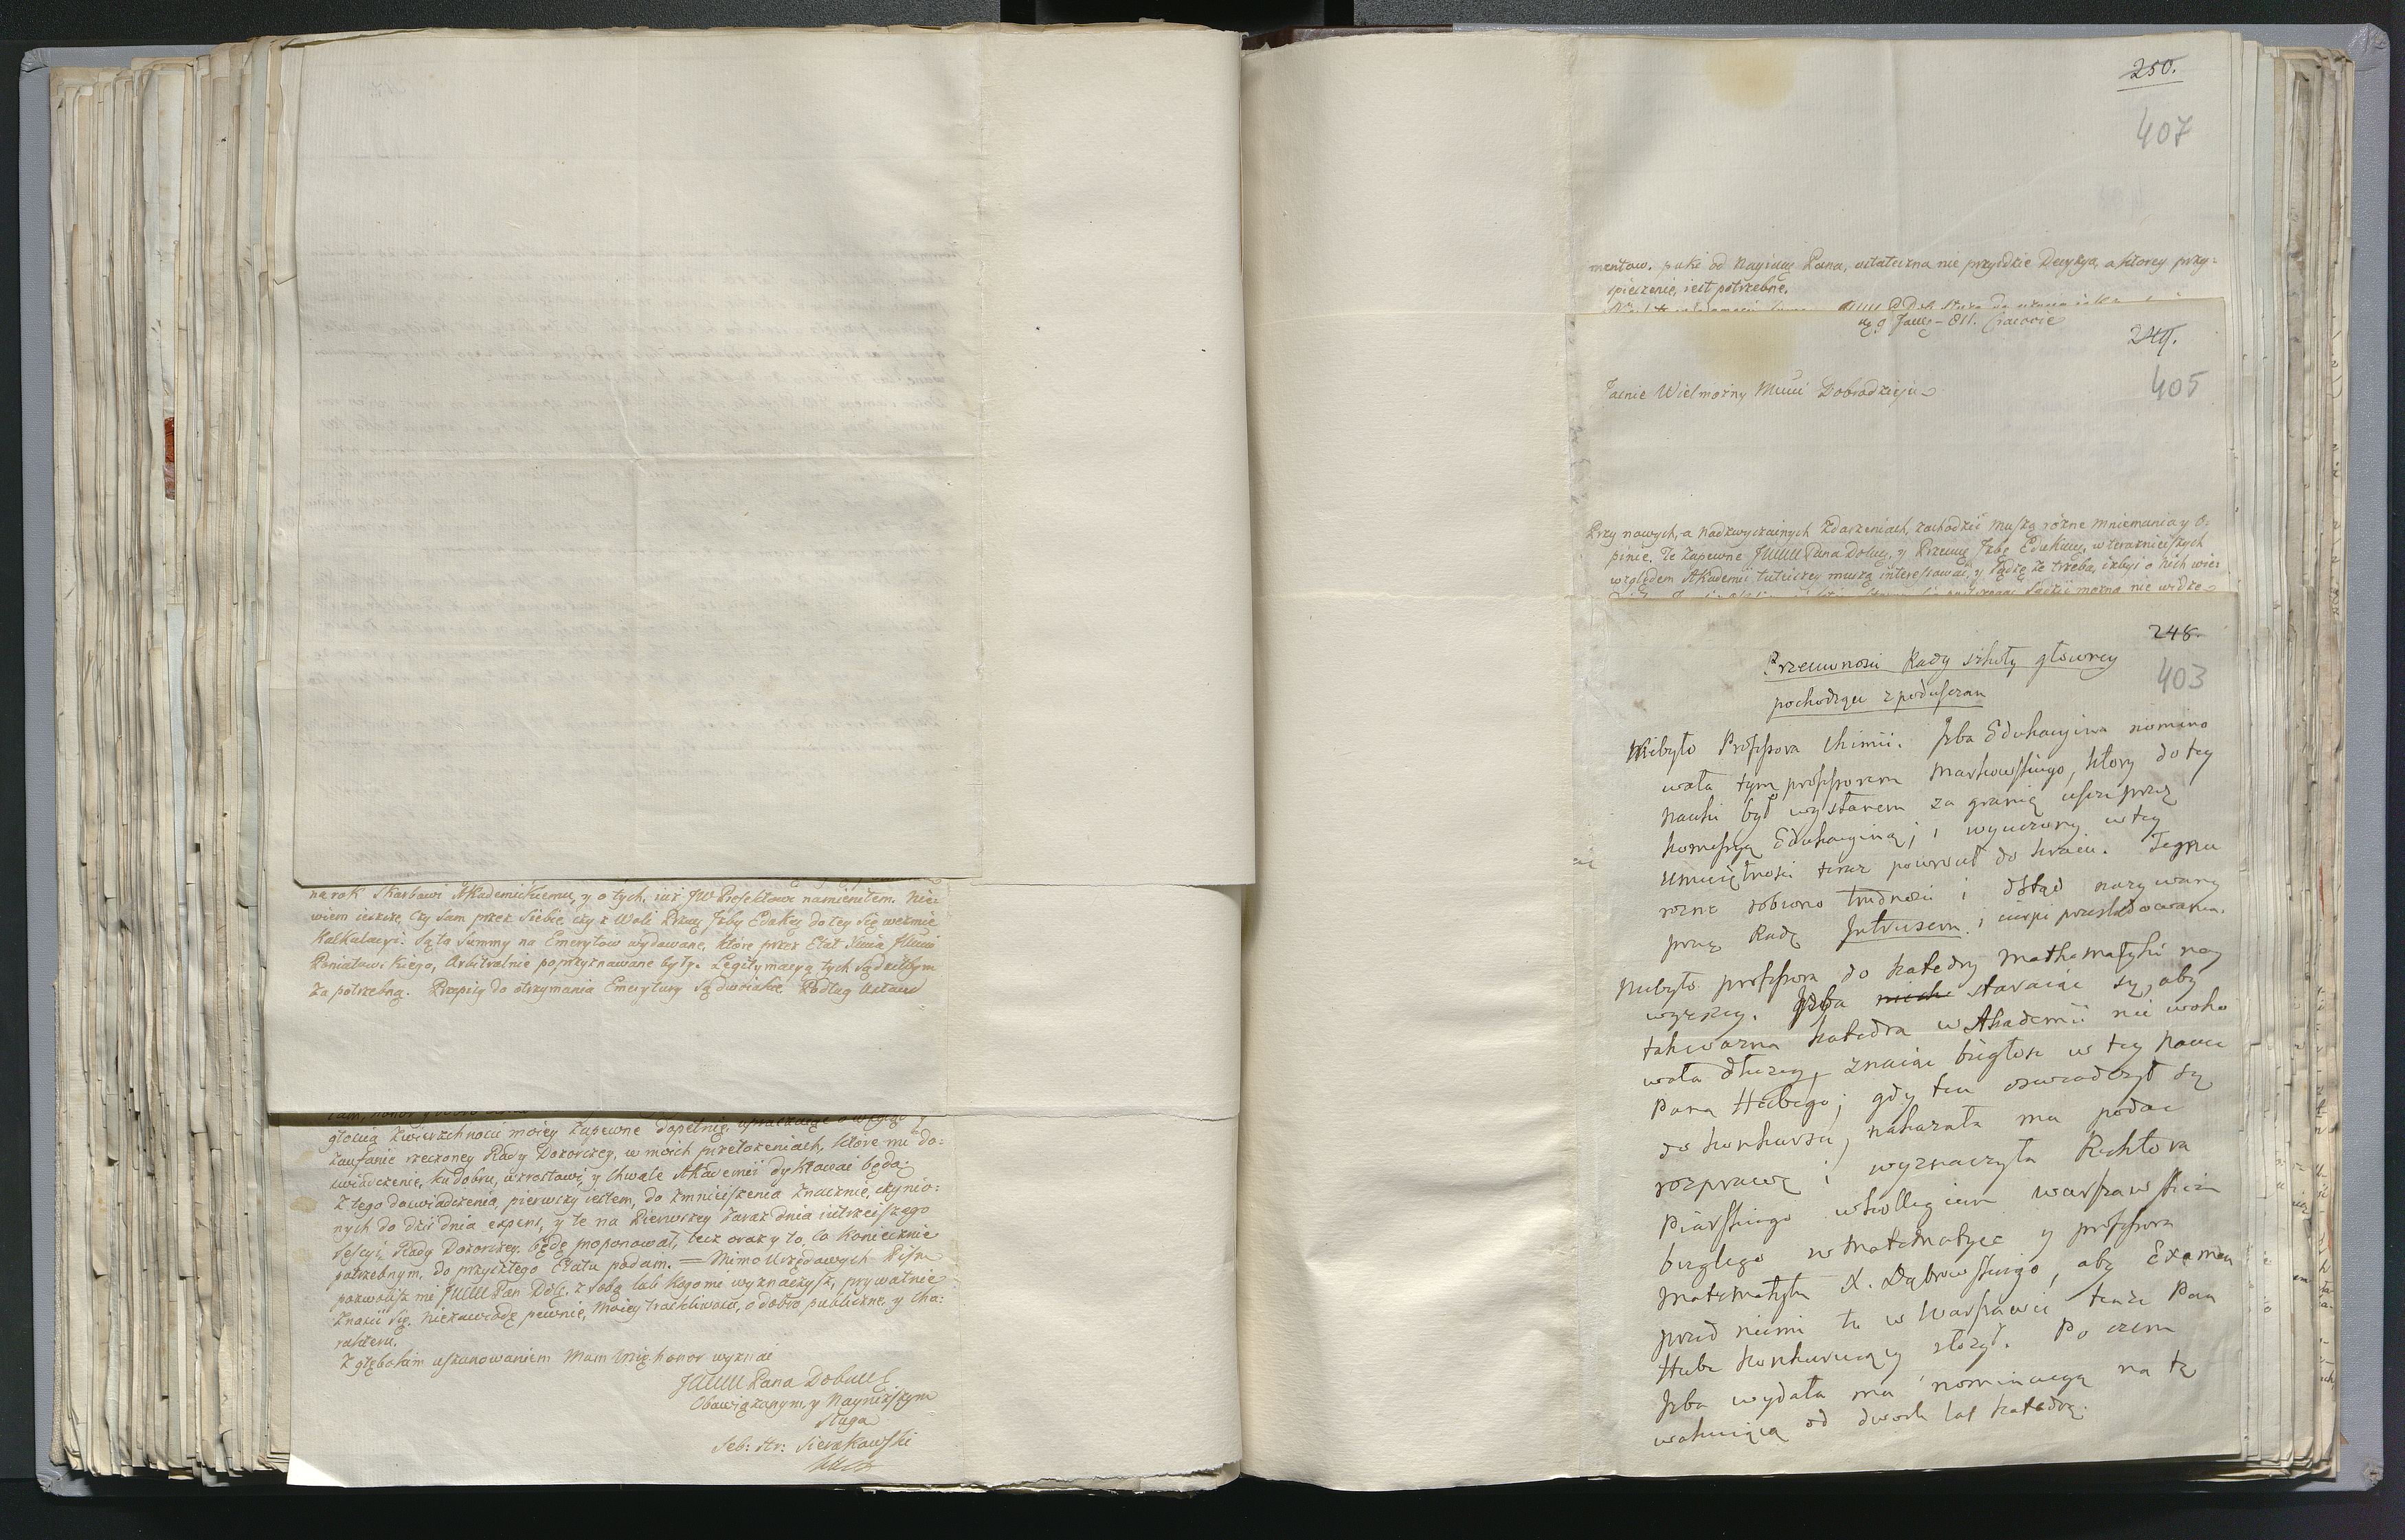 na rok Skarbowi Akademickiemu, y o tych, iuż JW Prefektowi namieniłem. Nie
wiem ieszcze, czy sam przez Siebie, czy z Woli Przew Jzby Edukcy do tey się weźmie
Kalkulacyi. Są to Summy na Emerytow wydawane, które przez Etat Xcia Jmci
Poniatowskiego, Arbitralnie poprzyznawane były. Legitymacyą tych sądziłbym
za potrzebną. Przepisy do otrzymania Emerytury są dwoiakie. Podług Ustaw
głosną Zwierzchności moiey zapewne dopełnię
zaufanie rzeczoney Rady Dozorczey, w moich przełożeniach, które mi do=
świadczenie, ku dobru, wzrostowi, y chwale Akademii dyktować będą.
Z tego doświadczenia, pierwszy iestem, do zmnieyszenia znacznie, czynio=
nych do dziś dnia expens, y te na Pierwszey zaraz dnia iutrzeyszego
Sessyi, Rady Dozorczey, będę proponował, lecz oraz y to, co koniecznie
potrzebnym, do przyszłego Etatu podam. = Mimo Urzędowych Pism
pozwolisz mi JWW Pan Dobr. z sobą lub kogo mi wyznaczysz, prywatnie
znosić się. Niezawiodę pewnie, moiey troskliwości, o dobro publiczne, y cha=
rakteru.
Z głębokim uszanowaniem Mam Usię honor wyznać
JWW Pana Dobrod.
Obowiązanym, y Nayniższym
sługa
Seb: Hr: Sierakowski
250.
407
mentow. puki od Nayias Pana, ostateczna nie przyidzie Decyzya, a którey przy=
spieszenie, iest potrzebne.
9 Janu – 811. Cracovie
249.
405
Jasnie Wielmożny Mości Dobrodzieju
Przy nowych, a Nadzwyczainych Zdarzeniach, zachodzić muszą różne mniemania y O=
pinie. Te zapewne JWW Pana Dobro, y Przew Jzbę Edukcy, w teraznieiszych
względem Akademii tuteiszey muszą interessować, y sądzę że trzeba, iżbyś o nich wie
sądzić można nie widze
248.
403
Przeciwności Rady szkoły głowney
pochodzące z poduszczeń
Niebyło Professora Chimii. Jzba Edukacyina nomino
wała tym professorem Markowskiego, który do tey
nauki był wysłanem za granicę ieszcze przez
Komissyą Edukacyiną; i wyuczony w tey
umieiętności teraz powrocił do kraiu. Jegomu
rożne robiono trudności i dotąd nazywany
przez Radę Jntrusem, i cierpi prześladowania.
Niebyło professora do katedry Mathematyki nay
wyższey. Jzba staraiąc się, aby
tak ważna katedra w Akademii nie wako
wała dłużey, znaiąc biegłość w tey Nauce
Pana Hubego; gdy ten oswiadczył się
do konkursu, nakazała mu podać
rozprawę i wyznaczyła Rektora
Piarskiego w kollegium warszawskim
biegłego w Matematyce y professora
Matematyki X. Dąbrowskiego, aby Examen
przed niemi tu w Warszawie tenże Pan
Hube konkuruiący złożył. Po czem
Jzba wydała mu nominacyą na tę
wakuiącą od dwoch lat katedrę.